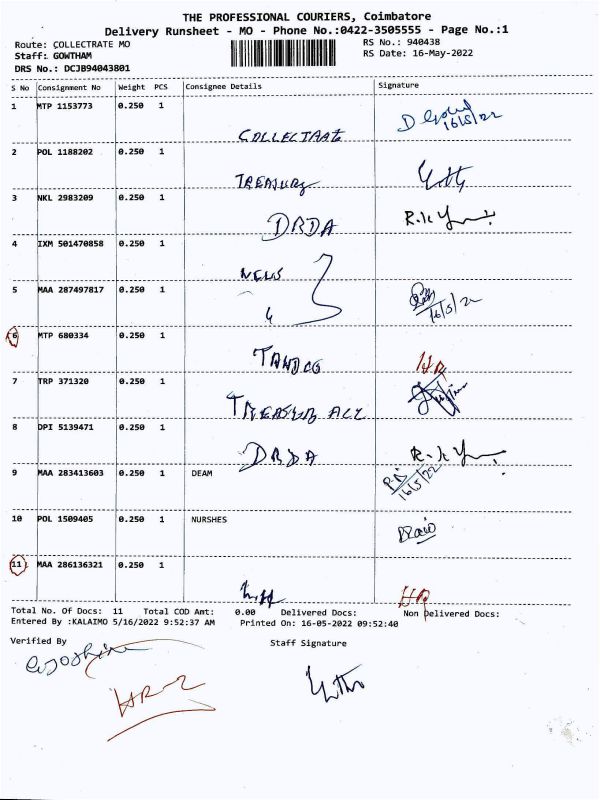 THE PROFESSIONAL COURIERS, Coimbatore
Delivery Runsheet - MO - Phone No.:0422-3505555 - Page No.:1
Route: COLLECTRATE MO
RS No.: 940438
Staff: GOWTHAM
RS Date: 16-May-2022
DRS No.: DCJB94043801
S No Consignment No Weight PCS Consignee Details Signature
1 MTP 1153773 0.250 1
COLLECTRATE 16/5/22
2 POL 1188202 0.250 1
TREASURY
3 NKL 2983209 0.250 1
DRDA
4 IXM 501470858 0.250 1
NEWS
5 MAA 287497817 0.250 1
16/5/22
6 MTP 680334 0.250 1
7 TRP 371320 0.250 1
8 DPI 5139471 0.250 1
DRDA
9 MAA 283413603 0.250 1 DEAM
16/5/22
10 POL 1509405 0.250 1 NURSHES
11 MAA 286136321 0.250 1
Total No. Of Docs: 11 Total COD Amt: 0.00 Delivered Docs: Non Delivered Docs:
Entered By :KALAIMO 5/16/2022 9:52:37 AM Printed On: 16-05-2022 09:52:40
Verified By Staff Signature